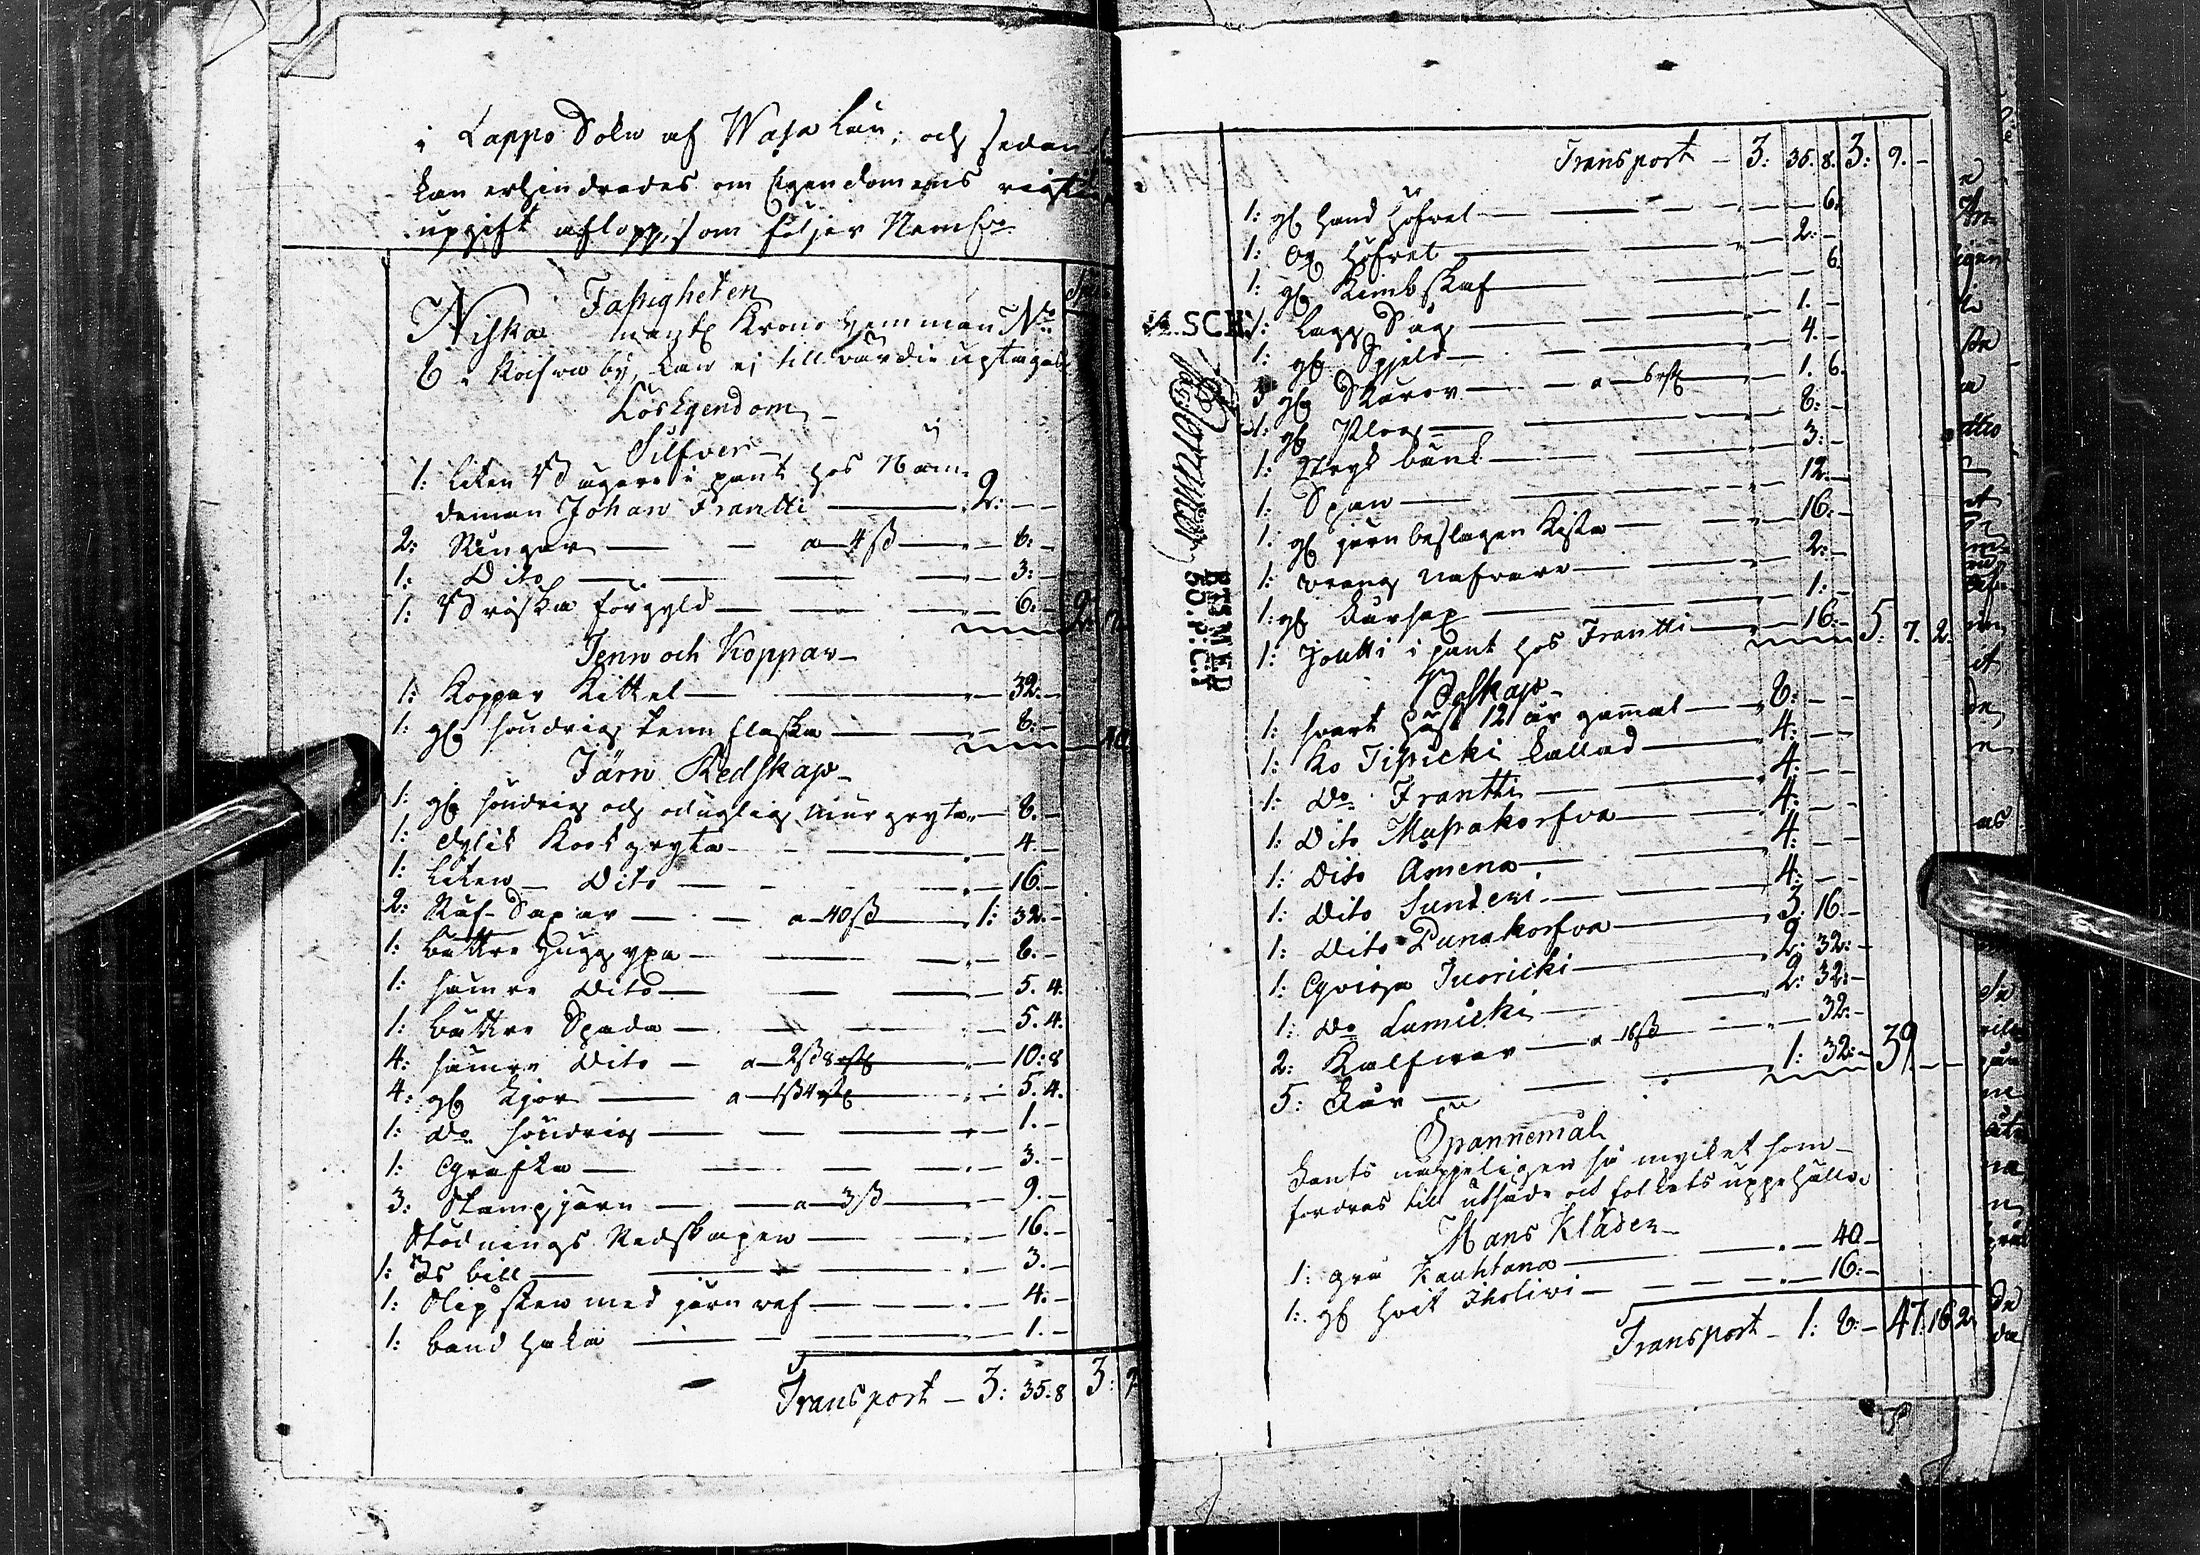 i Lappo Sokn af Wasa Län, och sedan
han erhindrades om Egendomens rigtiga
uppgift aflopp, som följer Nemln
Fastigheten
Niska nampt Krono Hemman No
8 i Kosowa by, kan ej till värdie uptagas
Lös Egendom
Silfver
1: liten Sugare i pant hos Näm-
deman Johan Frantti 2: - -
2: Ringar a 4 ß 8: -
1: Dito 3: -
1: Briska förgyld 6: -
Tenn och Koppar
1: Koppar Kittel 32: -
1: gl söndrig tenn flaska 8: -
Järn Redskap
1: gl söndrig och oduglig Murgryta 8. -
1: dylik Kokgryta 4. -
1: liten Dito 16. -
2: Ruf Saxar a 40 ß 1: 32: -
1: bättre huggyxa 8: -
1: sämre Dito 5. 4.
1: bättre Spada 5. 4.
4: sämre Dito a 2 ß 8 rst 10: 8
4: gl Lijor a 1 ß 4 rst 5. 4.
1: do söndrig 1. -
1: Gräfta 3. -
3: Stampjärn a 3 ß 9. -
Slödnings Redskapen 16. -
1: Is bill 3. -
1: Slipsten med järn vef 4: -
1: band haka 1. -
Transport 3: 35. 8 3: 9
Transport 3: 35. 8. 3: 9. -
1: gl hand höfvel 6.
1: Ox höfvel 2: -
1: gl Kimbskaf 6.
1: Lagg Såg 1. -
1: gl Spjeld 4. -
3 gl Skäror a 6 rst 1. 6.
1: gl Plog 8: -
1: Stryk bänk 3: -
1: Span 12: -
1: gl jern beslagen Kista 16: -
1: vrang Nafvare 2: -
1: gl Fårsax 1: -
1: Joutti i pant hos Frantti 16: - 5: 7. 2.
Boskap
1: svart häst 12 år gammal 8: - -
1: Ko Tipicki kallad 4: - -
1: Do Frantti 4: - -
1: Dito Mustakorfva 4: - -
1: Dito Amena 4: - -
1: Dito Sunderi 4: - -
1: Dito Punakorfva 3: 16. -
1: Qviga Iuoricki 2: 32: -
1: Do Lumicki 2: 32: -
2: Kalfwar a 16 ß 32: -
5: Får 1: 32: - 39. - -
Spannemål
Fants nappeligen så mycket som
fordras till utsäde och folkets uppehälle
Mans Kläder
1: grå Kauhtana 40 -
1: gl hvit Iholivi 16: -
Transport 1: 8: - 47: 16. 2.